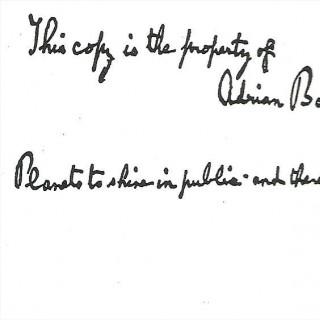 This copy is the property of
Adrian Bo
Planets to shine in public - and there